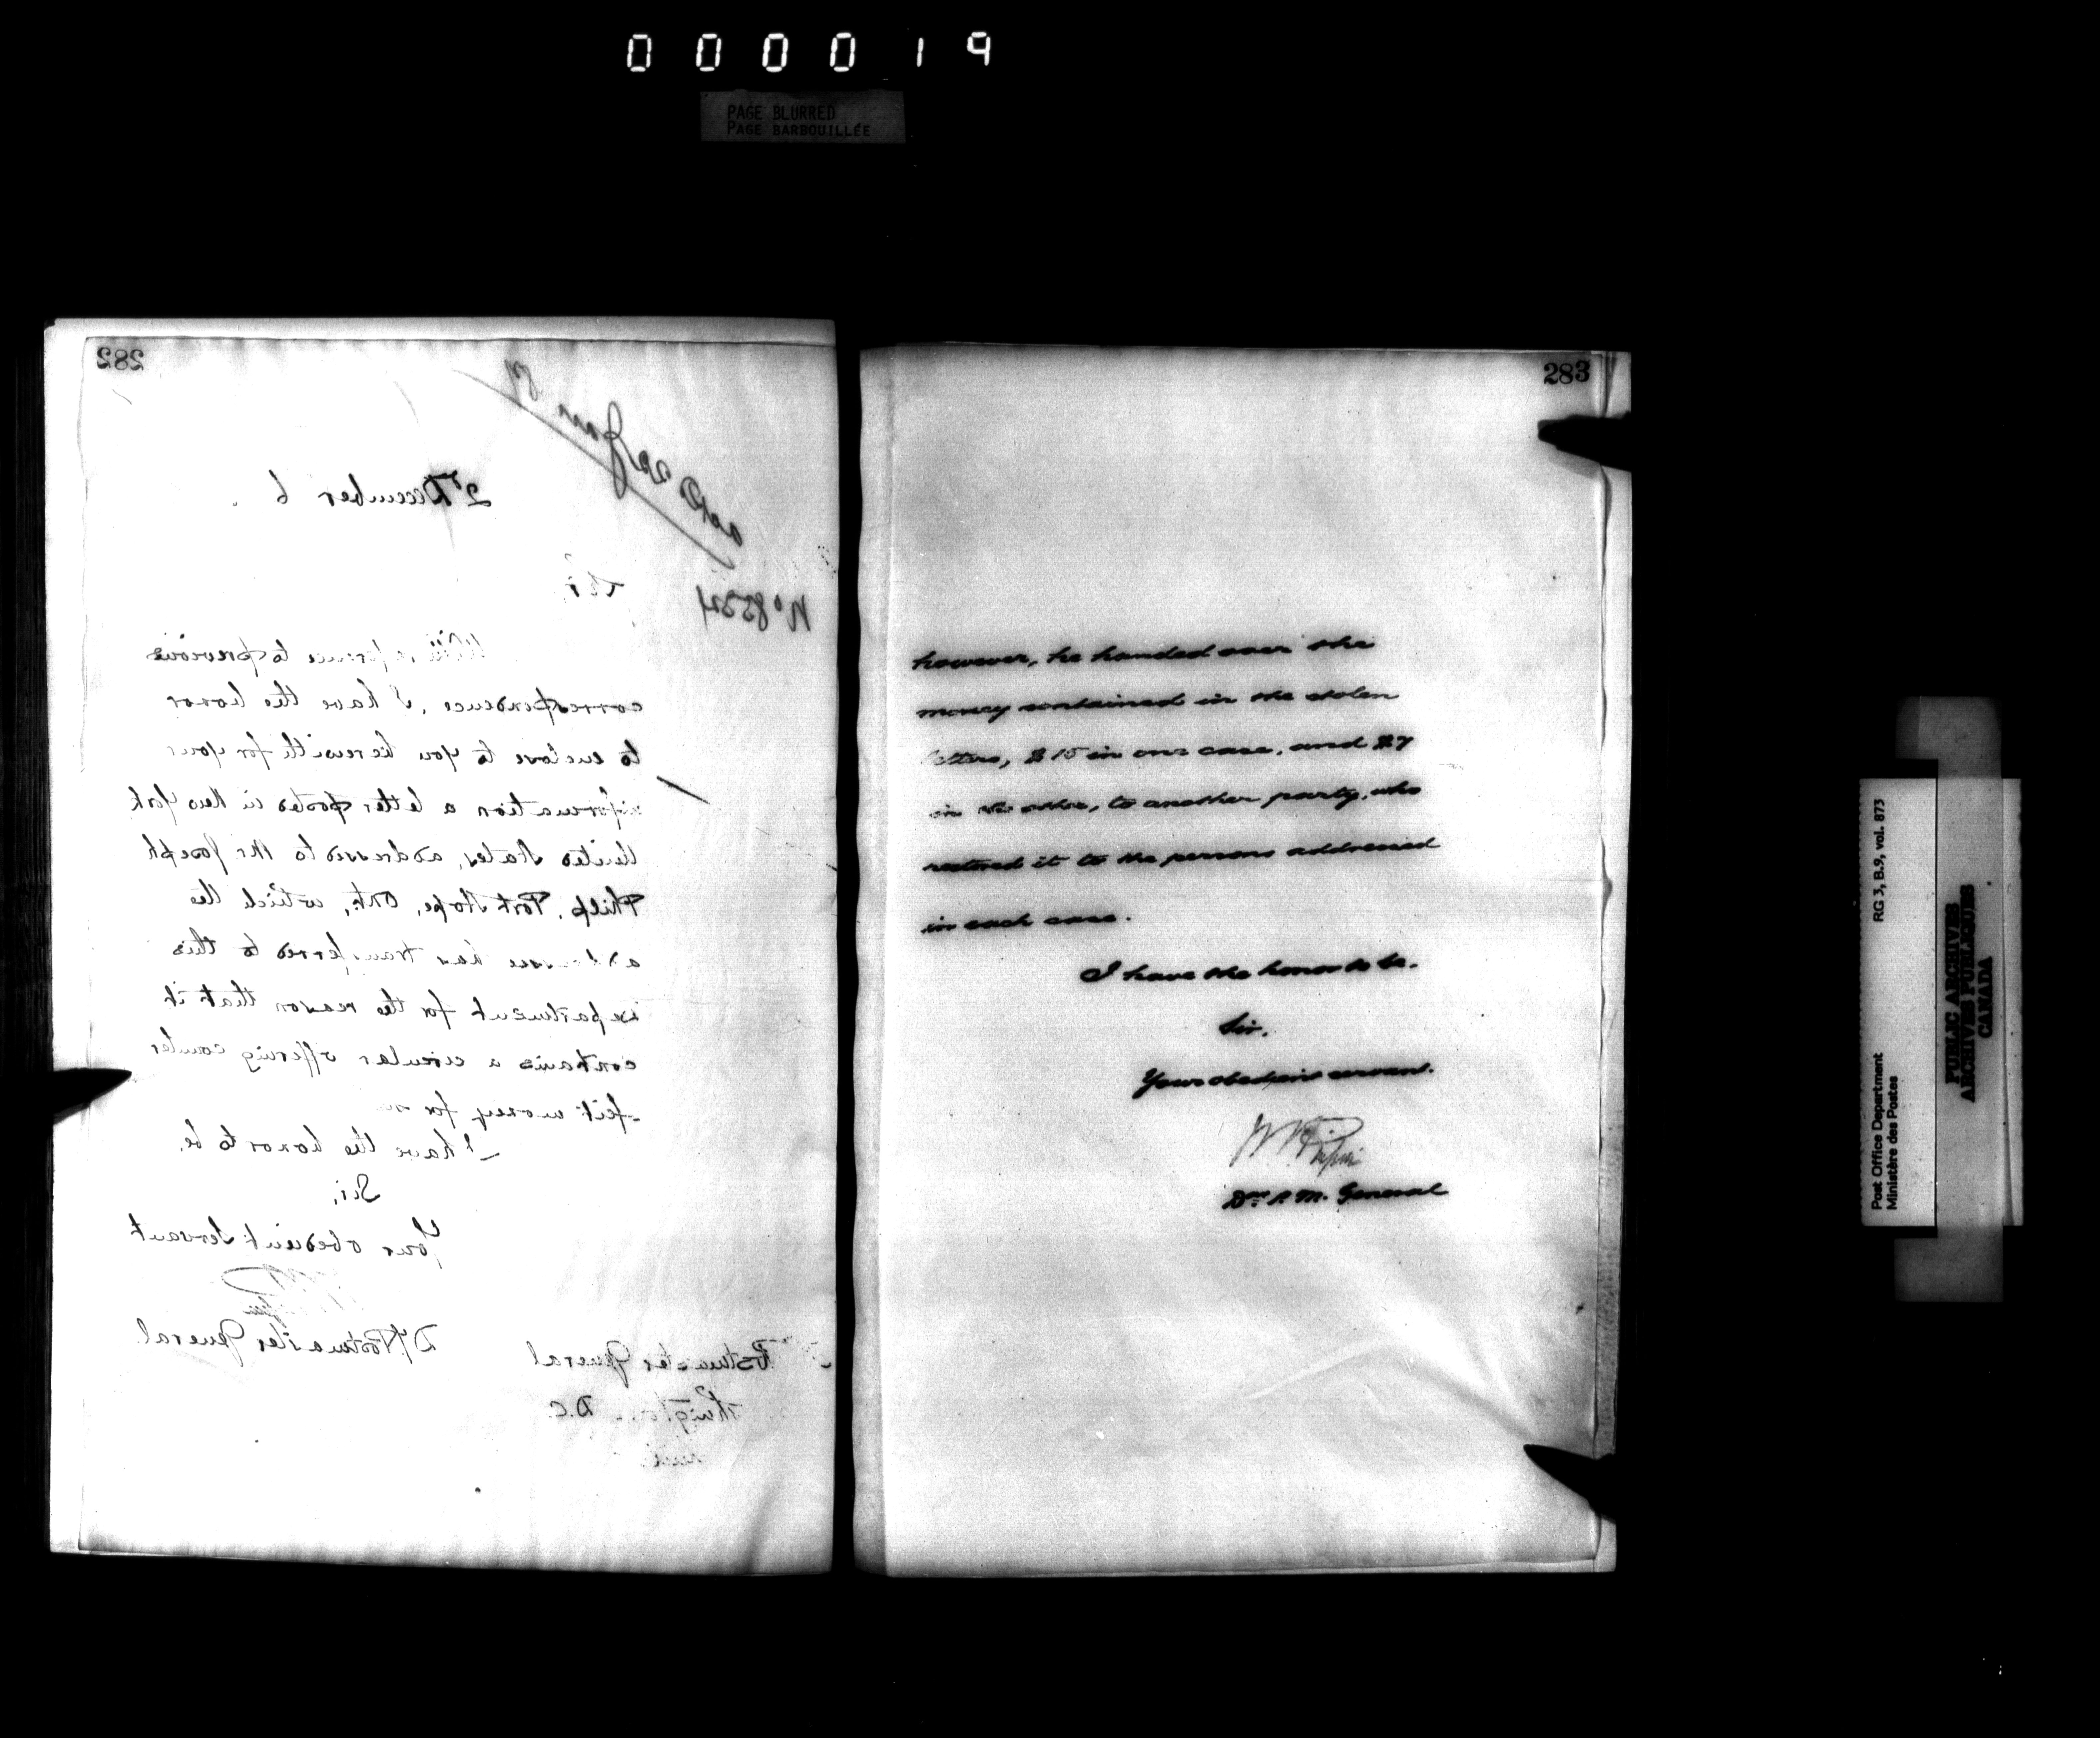 000019
PAGE BLURRED
PAGE BARBOUILLÉE
282
ackd 22 Jan 87
2d December 6
No 8524
Sir,
With reference to previous
correspondence, I have the honor
to enclose to you herewith for your
information a letter posted in New York
United States, addressed to Mr Joseph
Philp, Port Hope, Ont., which the
addressee has transferred to this
department for the reason that it
contains a circular offering counter
-feit money for
I have the honor to be,
Sir,
Your obedient Servant
Dy. Postmaster General
Postmaster General
D.C.
283
however, he handed over the
money contained in the stolen
letters, $15 in one case, and $7
in the other, to another party, who
restored it to the persons addressed
in each case.
I have the honor to be,
Sir,
Your obedient servant.
Dy. P. M. General
Post Office Department RG 3, B.9, vol. 873
Ministère des Postes
PUBLIC ARCHIVES
ARCHIVES PUBLIQUES
CANADA